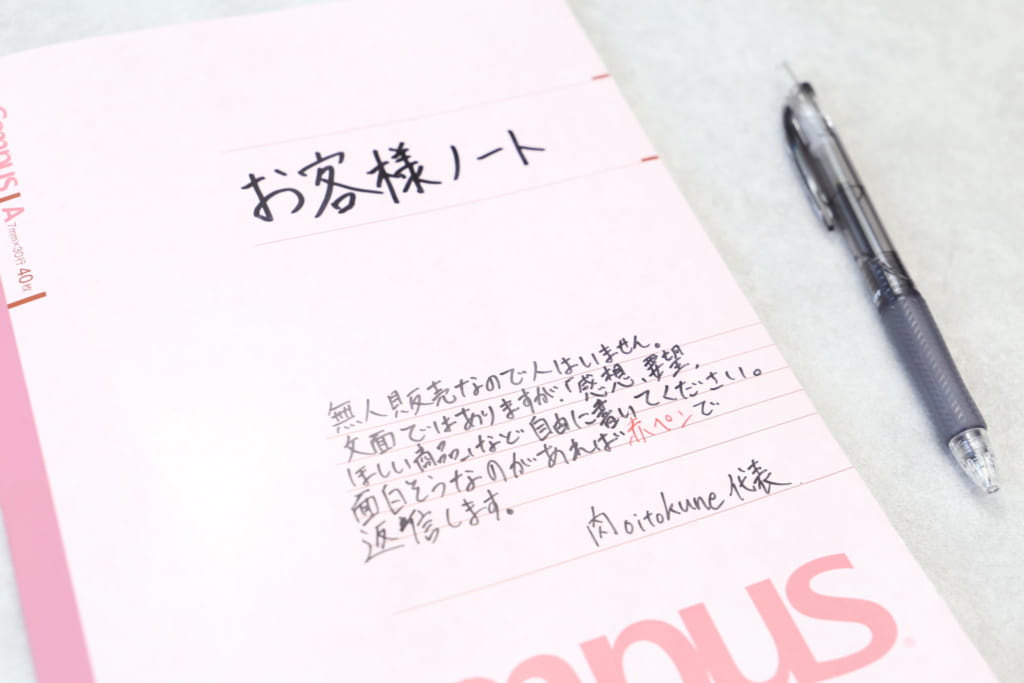 Campus
A
7mm×30行
40枚
お客様ノート
無人販売なので人はいません。
文面ではありますが、「感想、要望、
ほしい商品」など自由に書いてください。
面白そうなのがあれば赤ペンで
返信します。
肉oitokune代表
mpus